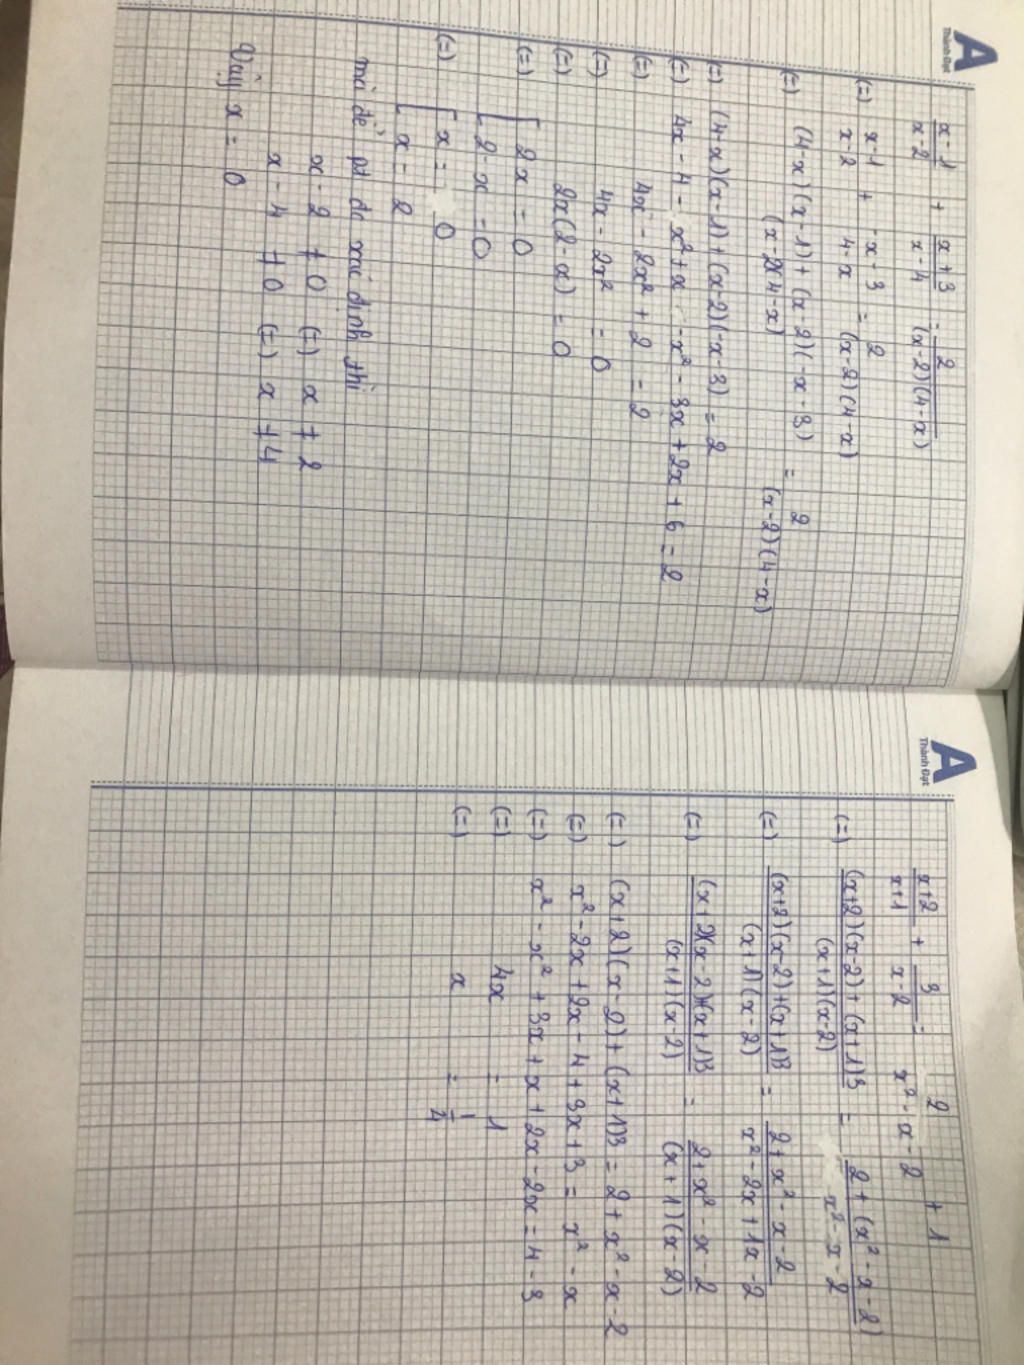 A
Thành Đạt
x-1/x-2 + x+3/x-4 = 2/(x-2)(4-x)
(=) x-1/x-2 + -x-3/4-x = 2/(x-2)(4-x)
(=) (4-x)(x-1)+(x-2)(-x-3)/(x-2)(4-x) = 2/(x-2)(4-x)
(=) (4-x)(x-1)+(x-2)(-x-3) = 2
(=) 4x-4-x²+x-x²-3x+2x+6 = 2
(=) 4x-2x²+2 = 2
(=) 4x-2x² = 0
(=) 2x(2-x) = 0
(=) [ 2x = 0
[ 2-x = 0
(=) [ x = 0
[ x = 2
mà để pt đc xác định thì
x-2 ≠ 0 (=) x ≠ 2
x-4 ≠ 0 (=) x ≠ 4
Vậy x = 0
A
Thành Đạt
x+2/x+1 + 3/x-2 = 2/x²-x-2 + 1
(=) (x+2)(x-2)+(x+1)3/(x+1)(x-2) = 2+(x²-x-2)/x²-x-2
(=) (x+2)(x-2)+(x+1)3/(x+1)(x-2) = 2+x²-x-2/x²-2x+1x-2
(=) (x+2)(x-2)+(x+1)3/(x+1)(x-2) = 2+x²-x-2/(x+1)(x-2)
(=) (x+2)(x-2)+(x+1)3 = 2+x²-x-2
(=) x²-2x+2x-4+3x+3 = x²-x
(=) x²-x²+3x+x+2x-2x = 4-3
(=) 4x = 1
(=) x = 1/4